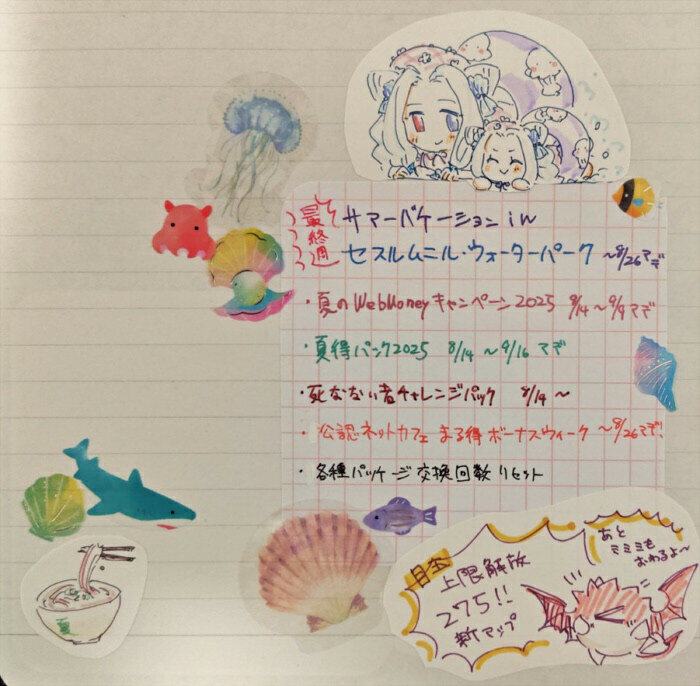 最終週
サマーバケーション in
セスルムニル・ウォーターパーク ~8/26マデ
・夏のWebMoneyキャンペーン2025 8/14~9/9マデ
・夏得パック2025 8/14~9/16マデ
・死なない者チャレンジパック 8/14~
・公認ネットカフェ まる得ボーナスウィーク ~8/26マデ!
・各種パッケージ交換回数リセット
目玉
上限解放
275!!
新マップ
あと
ミミミも
おわるよ~
夏